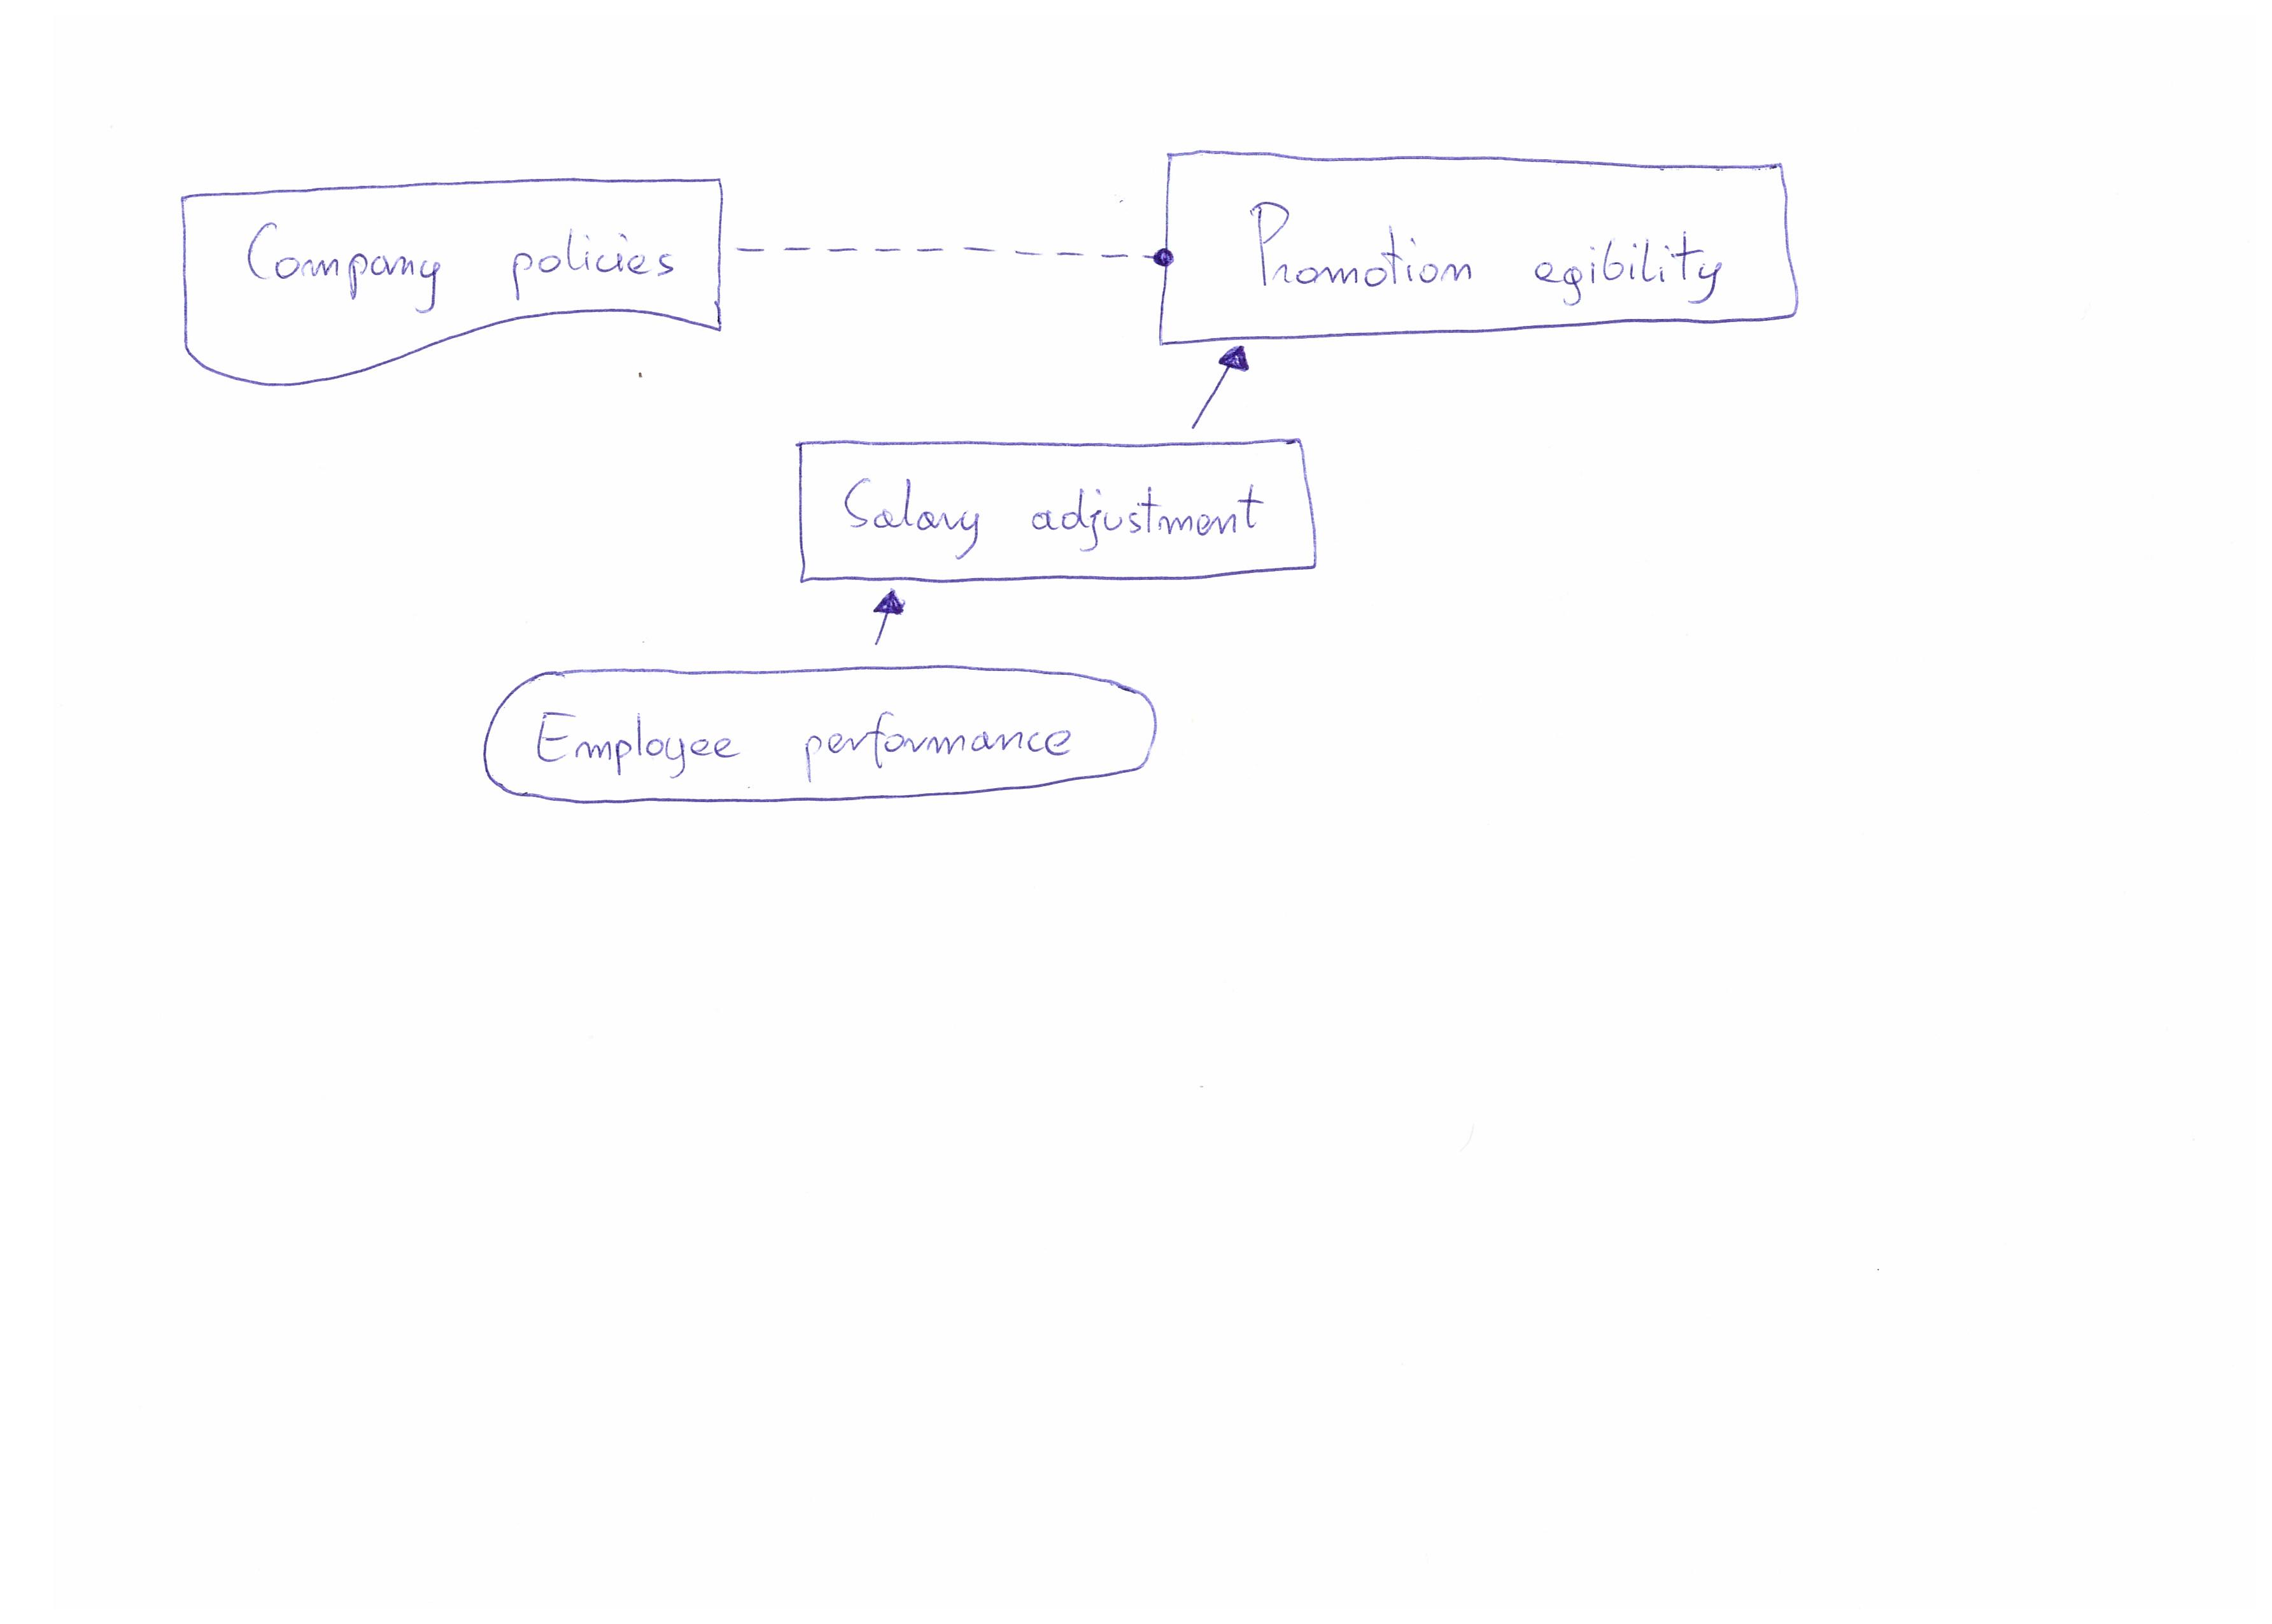 Company policies
Promotion egibility
Salary adjustment
Employee performance